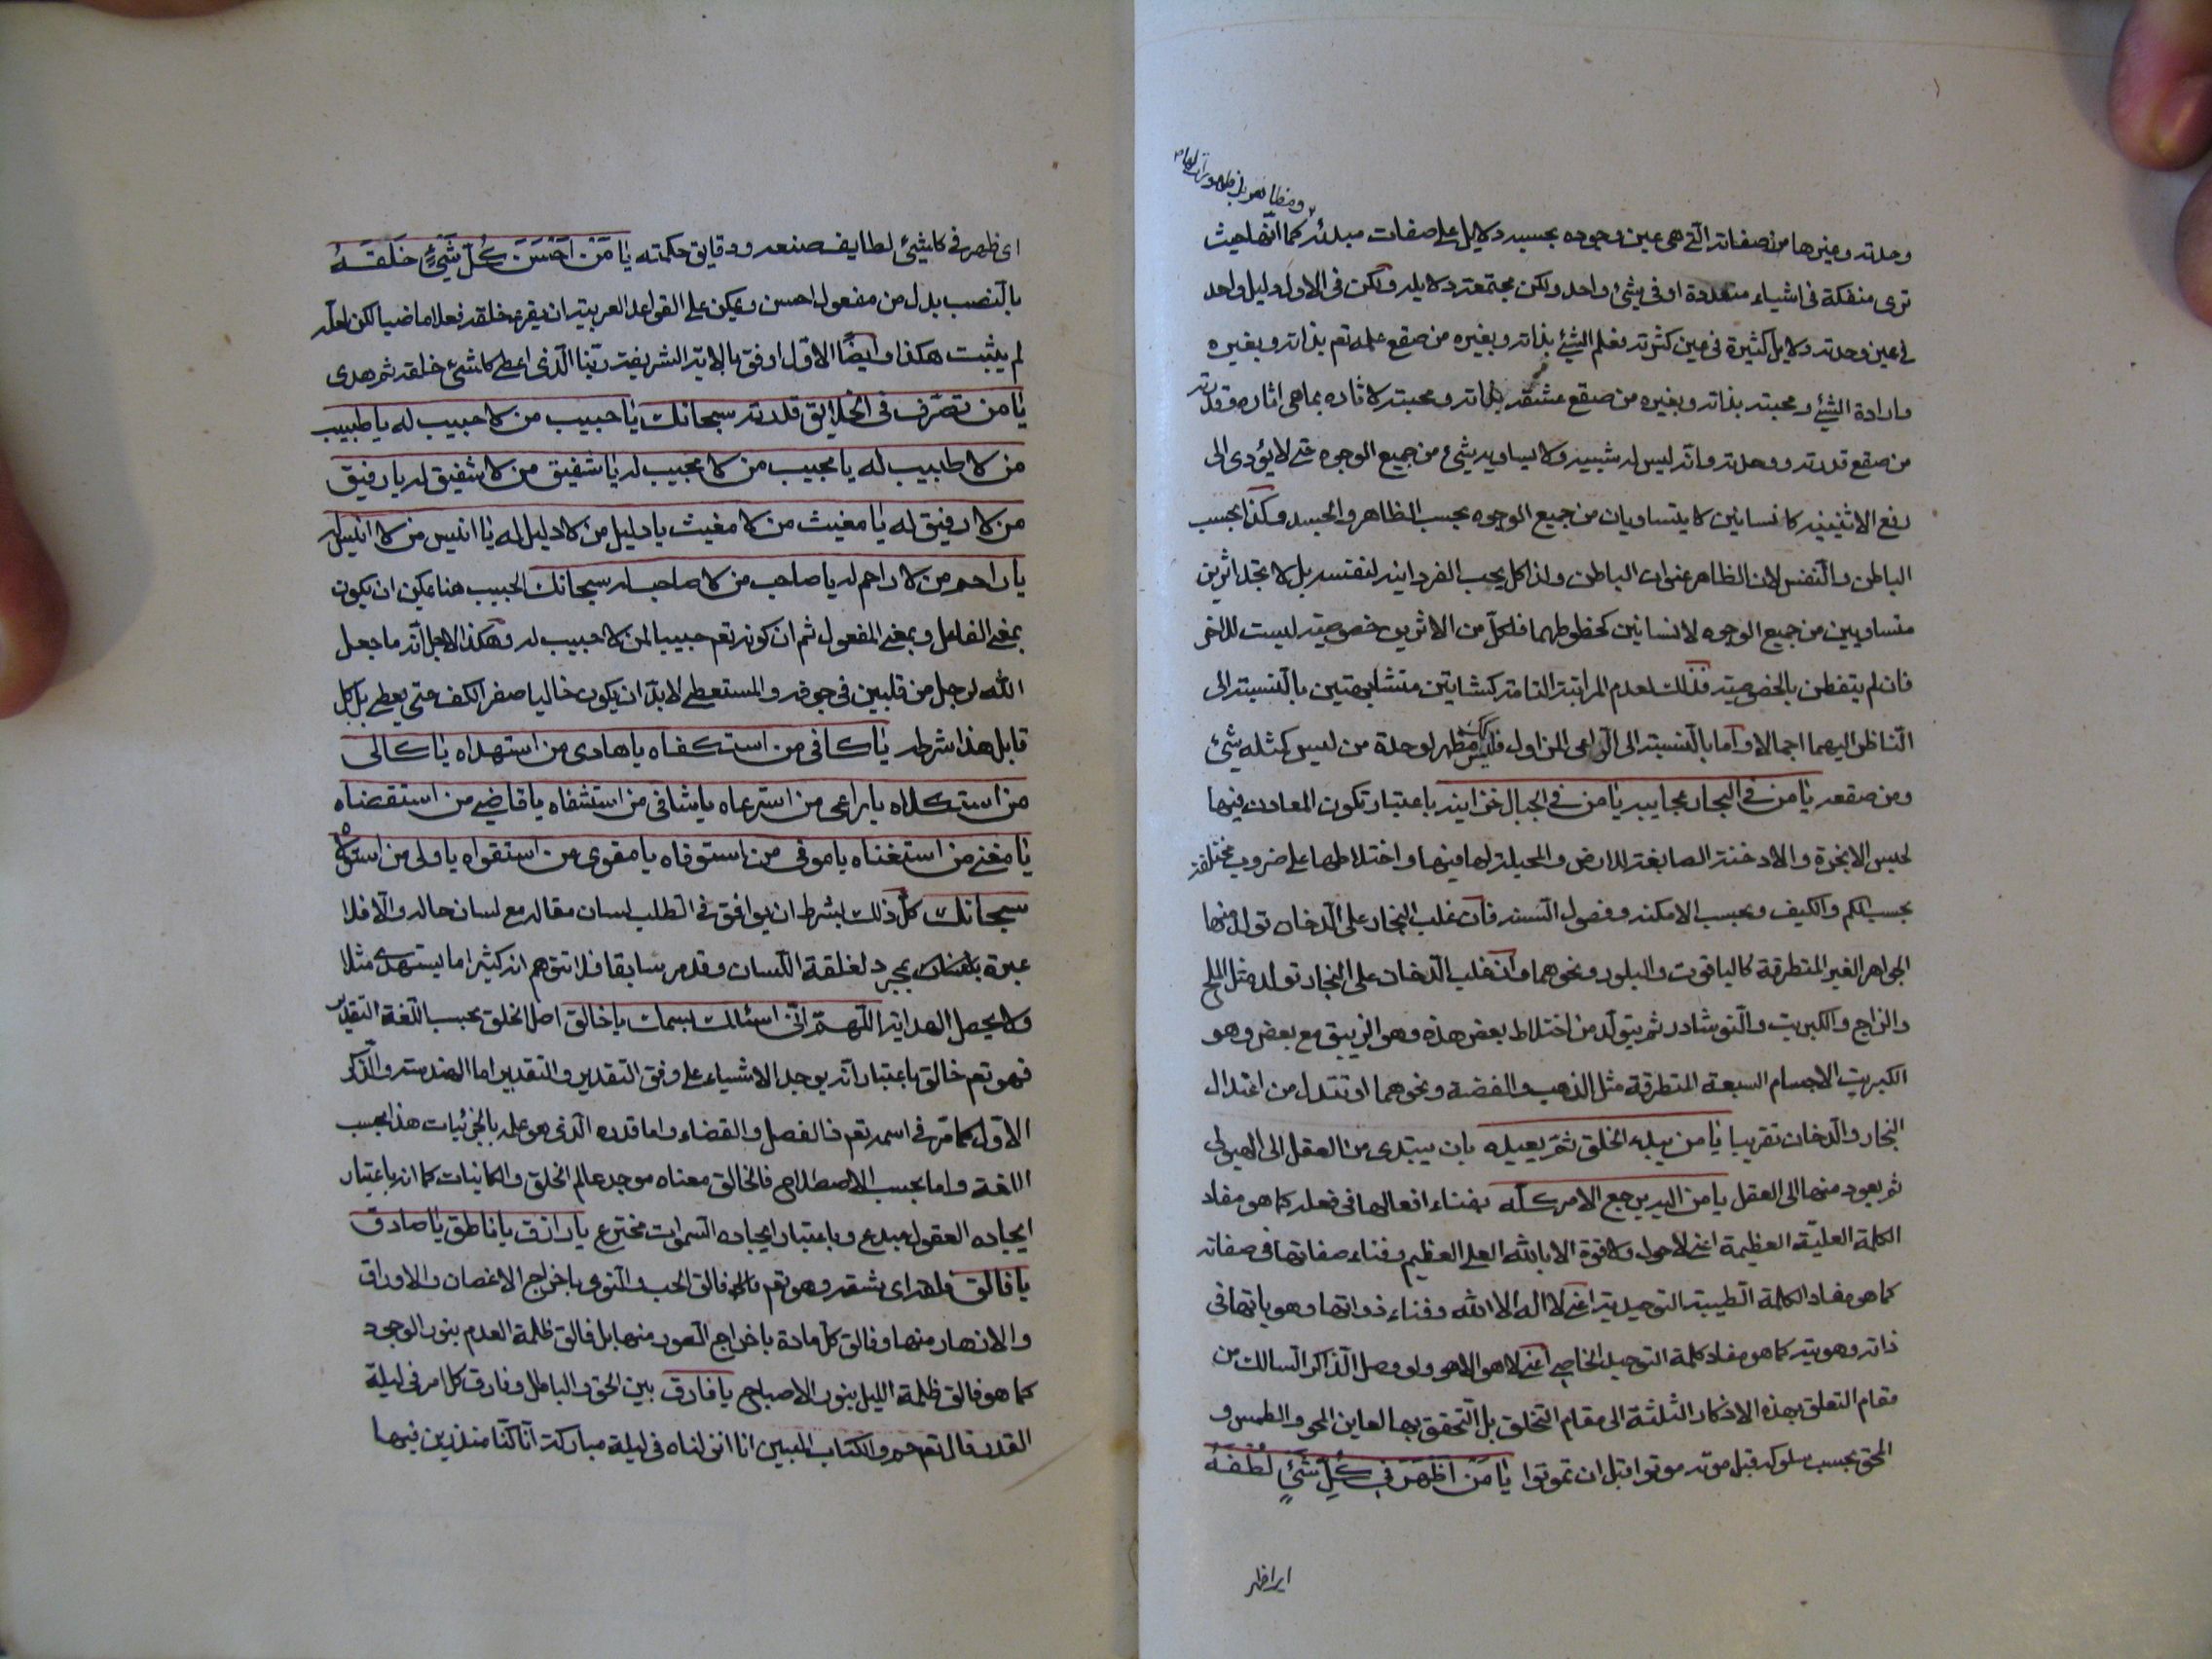 ومظاهر بل ظهورات لها
وحدته وغيرها من صفاته الّتى هى عين وجوده بحسبه دلايل على صفات مبدئه كما انّها حيث
ترى منفكة فى اشياء متعددة او فى شئ واحد ولكن مجتمعة دلايله ولكن فى الاول دليل واحد
فى عين وحدته ودلايل كثيرة فى عين كثرته فعلم الشئ بذاته وبغيره من صقع علمه تعم بذاته وبغيره
وارادة الشئ ومحبته بذاته وبغيره من صقع عشقه بذاته ومحبته لاثاره بماهى اثاره وقدرته
من صقع قدرته ووحدته وانّه ليس له شبيه ولا يساويه شئ من جميع الوجوه حتى لا يؤدى الى
رفع الاثنينيه كانسانين لا يتساويان من جميع الوجوه بحسب الظاهر والجسد وكذا بحسب
الباطن والنّفس لان الظاهر عنوان الباطن ولذا كل يحب الفردانيه لنفسه بل لا تجد اثرين
متساويين من جميع الوجوه لانسانين كخطوطهما فلكلّ من الاثرين خصوصيته ليست للاخر
فان لم يتفطن بالخصوصيته فذلك لعدم المراتبة التامة كشاتين متشابهتين بالنّسبة الى
النّاظر اليهما اجمالا وامّا بالنّسبة الى الرّاعى المزاول فليس كك مظهر لوحدة من ليس كمثله شئ
ومن صقعه يا من فى البحار عجايبه يا من فى الجبال خزاينه باعتبار تكون المعادن فيها
لحبس الابخرة والادخنة الصابغة للارض والمحيلة لها فيها واختلاطها على ضروب مختلفة
بحسب الكم والكيف وبحسب الامكنه وفصول السّنه فان غلب البخار على الدّخان تولد منها
الجواهر الغير المتطرقة كالياقوت والبلور ونحوهما وان غلب الدّخان على البخار تولد مثل الملح
والزاج والكبريت والنّوشادر ثم يتولّد من اختلاط بعض هذه وهو الزيبق مع بعض وهو
الكبريت الاجسام السبعة المتطرقة مثل الذهب والفضة ونحوهما او تتولد من اعتدال
البخار والدّخان تقريبا يا من يبدء الخلق ثمّ يعيده بان يبتدى من العقل الى الهيولى
ثم يعود منها الى العقل يا من اليه يرجع الامر كلّه بفناء افعالها فى فعله كما هو مفاد
الكلمة العليّة العظيمة اعنى لا حول ولا قوة الا بالله العلى العظيم وفناء صفاتها فى صفاته
كما هو مفاد الكلمة الطيبة التوحيدية اعنى لا اله الا الله وفناء ذواتها وهوياتها فى
ذاته وهويته كما هو مفاد كلمة التوحيد الخاصى اعنى لا هو الا هو ولو وصل الذّاكر السالك من
مقام التعلق بهذه الاذكار الثلثة الى مقام التخلق بل التّحقق بها لعاين المحو والطمس و
المحق بحسب سلوكه قبل موته موتوا قبل ان تموتوا يا مَنْ اَظْهَرَ فى كُلِّ شَئٍ لُطْفَهُ
اى ظهر فى كلشئ لطايف صنعه ودقايق حكمته يا مَنْ اَحْسَنَ كُلَّ شَئٍ خَلَقَهُ
بالنّصب بدل من مفعول احسن ويمكن على القواعد العربية ان يقرء خلقه فعلا ماضيا لكن لعلّه
لم يثبت هكذا وايضًا الاوّل اوفق بالاية الشريفة ربّنا الّذى اعطى كلشئ خلقه ثم هدى
يا من تصرّف فى الخلايق قدرته سبحانك يا حبيب من لا حبيب له يا طبيب
من لا طبيب له يا مجيب من لا مجيب له يا شفيق من لا شفيق له يا رفيق
من لا رفيق له يا مغيث من لا مغيث يا دليل من لا دليل له يا انيس من لا انيس له
يا راحم من لا راحم له يا صاحب من لا صاحب له سبحانك الحبيب هنا يمكن ان يكون
بمعنى الفاعل وبمعنى المفعول ثم ان كونه تعم حبيبا لمن لا حبيب له وهكذا لاجل انّه ما جعل
الله لرجل من قلبين فى جوفه والمستعطى لابدّ ان يكون خاليا صفر الكف حتى يعطى بل كل
قابل هذا شرطه يا كافى من استكفاه يا هادى من استهداه يا كالى
من استكلاه يا راعى من استرعاه يا شافى من استشفاه يا قاضى من استقضاه
يا مغنى من استغناه يا موفى من استوفاه يا مقوى من استقواه يا ولى من استولاه
سبحانك كلّ ذلك بشرط ان يوافق فى الطلب لسان مقاله مع لسان حاله والّا فلا
عبرة بمجرد لقلقة اللّسان وقد مر سابقا فلا تتوهم انه كثيرا ما يستهدى مثلا
ولا يحصل الهداية اللّهمّ انّى اسئلك باسمك يا خالق اصل الخلق بحسب اللّغة التقدير
فهو تعم خالق باعتبار انّه يوجد الاشياء على وفق التقدير والتقدير اما الهندسة والذّكر
الاوّل كما مرّ فى اسمه تعم فالفصل والقضاء واما قدره الّذى هو علمه بالجزئيات هذا بحسب
اللغة واما بحسب الاصطلاح فالخالق معناه موجد عالم الخلق والكاينات كما انه باعتبار
ايجاده العقول مبدع وباعتبار ايجاده السّموات مخترع يا رازق يا ناطق يا صادق
يا فالق فلقه اى شقه وهو تعم فالق الحب والنّوى باخراج الاغصان والاوراق
والازهار منها وفالق كلّ مادة باخراج الصّور منها بل فالق ظلمة العدم بنور الوجود
كما هو فالق ظلمة الليل بنور الاصباح يا فارق بين الحق والباطل وفارق كل امر فى ليلة
القدر قال تعم حم والكتاب المبين انا انزلناه فى ليلة مباركة انّا كنّا منذرين فيها